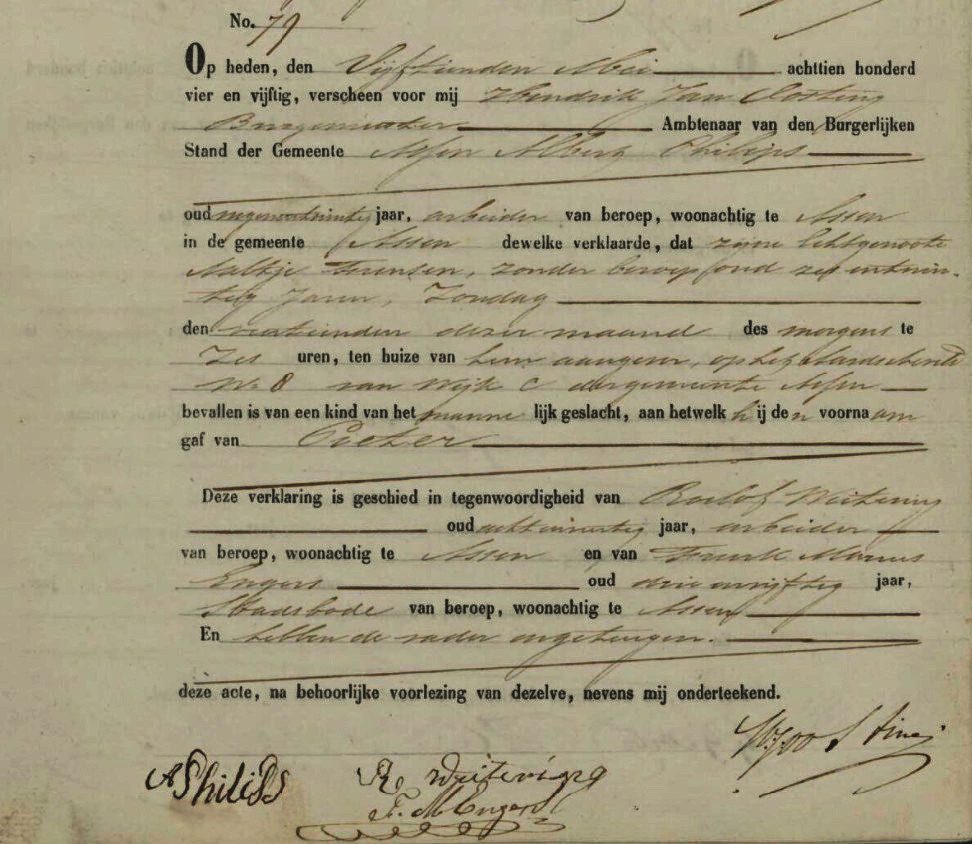 No. 79
Op heden, den Vijftienden Mei achttien honderd
vier en vijftig, verscheen voor mij Hendrik Jan Oosting
Burgemeester Ambtenaar van den Burgerlijken
Stand der Gemeente Assen Albert Philips
oud negenentwintig jaar, arbeider van beroep, woonachtig te Assen
in de gemeente Assen dewelke verklaarde, dat zijne Echtgenoote
Aaltje, zonder beroep, oud zesentwin-
tig Jaren, Zondag
den veertienden dezer maand des morgens te
Zes uren, ten huize van hem aangever, op het
No 8 van Wijk C dezer gemeente Assen
bevallen is van een kind van het manne lijk geslacht, aan hetwelk hij den voornaam
gaf van Pieter
Deze verklaring is geschied in tegenwoordigheid van Roelof Weitering
oud achtenveertig jaar, arbeider
van beroep, woonachtig te Assen en van Frank Marinus
Engers oud drieenvijftig jaar,
Stadsbode van beroep, woonachtig te Assen
En hebben de vader en getuigen.
deze acte, na behoorlijke voorlezing van dezelve, nevens mij onderteekend.
HJOosting
A Philips R Weitering
F. M Engers